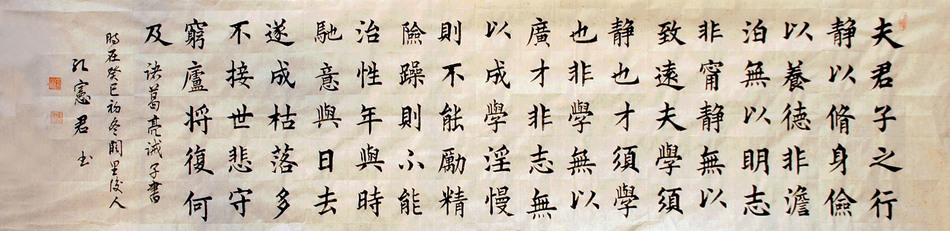 夫君子之行
静以脩身儉
以養德非澹
泊無以明志
非甯静無以
致遠夫學須
静也才須學
也非學無以
廣才非志無
以成學淫慢
則不能勵精
險躁則不能
治性年與時
馳意與日去
遂成枯落多
不接世悲守
窮廬將復何
及
诸葛亮诫子書
时在癸巳初冬闕里後人
孔憲君书